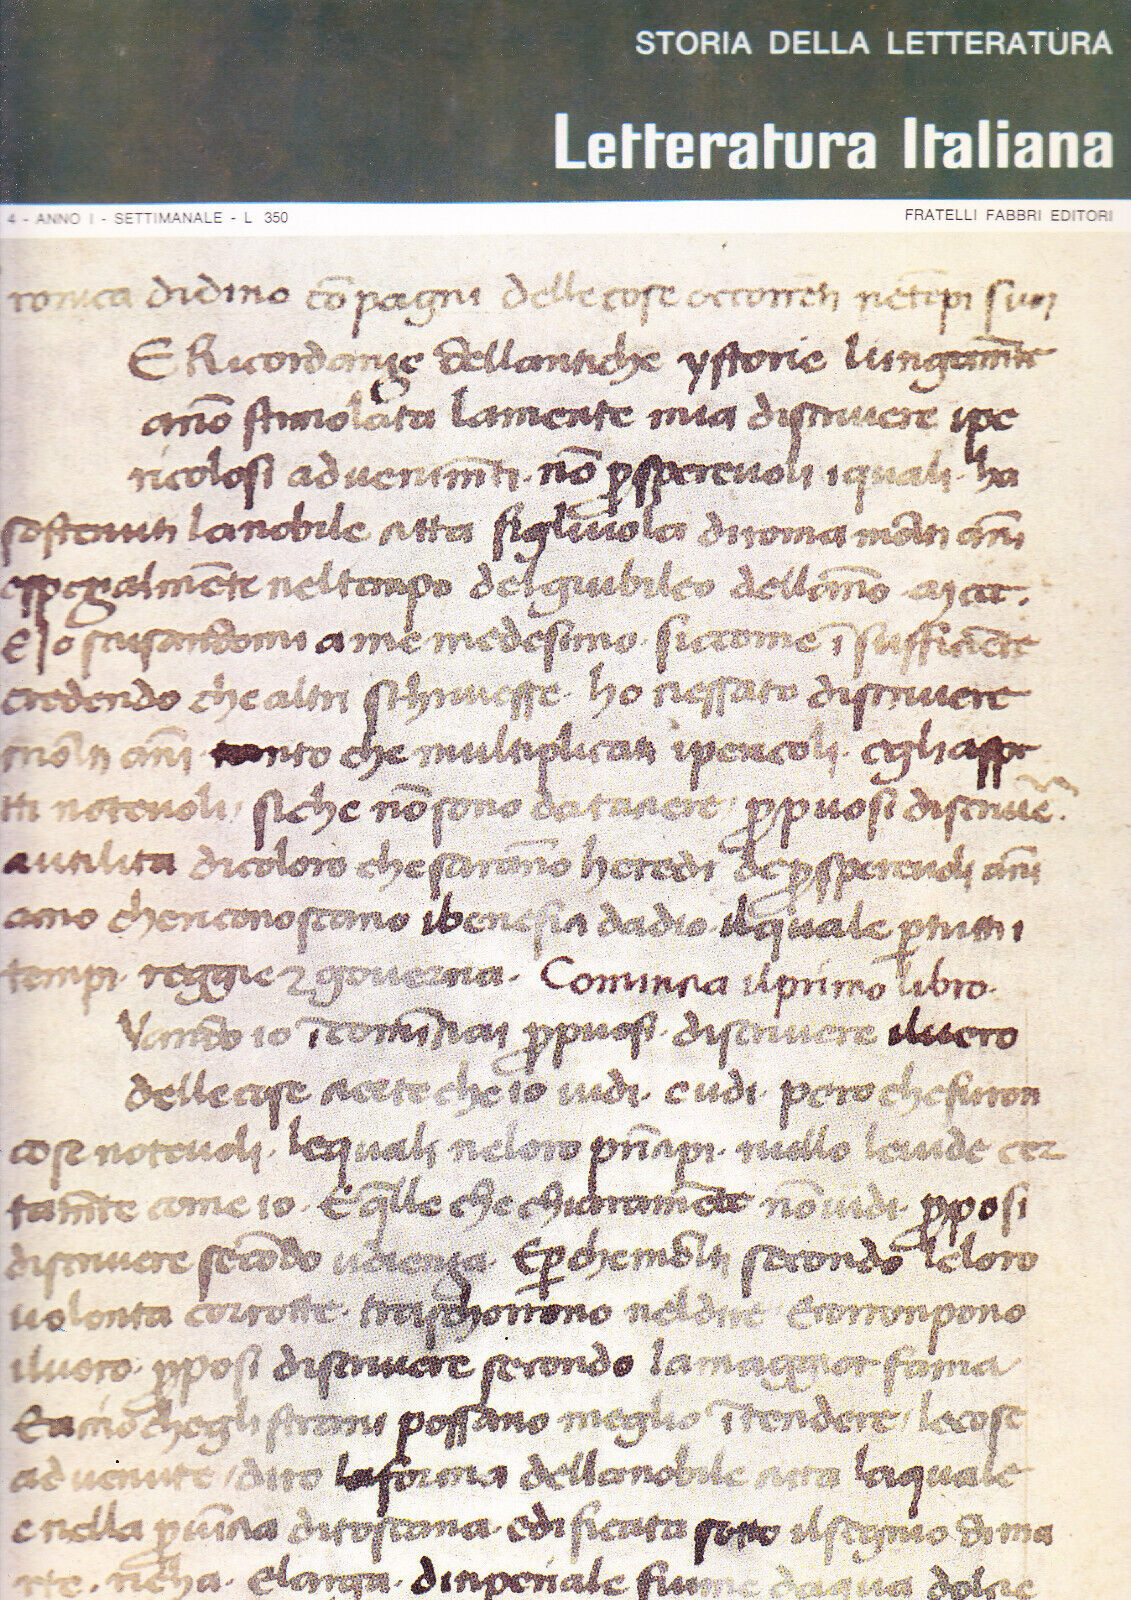 STORIA DELLA LETTERATURA
Letteratura Italiana
4 - ANNO I - SETTIMANALE - L 350
FRATELLI FABBRI EDITORI
ronica didino cō pagni delle cose occorrēti nētēpi suoi
E Ricordanze dellantiche ystorie lungamēte
āno stimolata lamente mia discriuere ipe
ricolosi aduenimēti. nō ꝓspereuoli iquali. ha
sostenuti lanobile citta figliuola diroma molti āni
espezialmēte neltempo delgiubileo dellāno
E Io scusandomi a me medesimo. siccome ī sufficiēte
credendo che altri schriuesse. ho cessato discriuere
molti āni tanto che multiplicati ipericoli. egli aspe
tti noteuoli / siche nō sono datacere / ꝓpuosi discriuē.
a utilita dicoloro che sarāno heredi de ꝓspereuoli āni
acio chericonoscano ibenefici dadio. ilquale ꝑtutti i
tempi. reggie ⁊ gouerna. Comincia il primo libro.
Vando io īcomīciai ꝓpuosi. discriuere iluero
delle cose certe che io uidi. e udi. pero che furon
cose noteuoli. lequali neloro prīcipi. nullo leuide cer
tamēte come io. E q̄lle che chiaramēte nō uidi. ꝓposi
discriuere secōdo udienza. E ꝑche molti secondo leloro
uolonta corrotte. traschorrono neldire Ecorronpono
iluero. ꝓposi discriuere secondo lamaggior fama
Eaciochegli strani possano meglio ītendere / lecose
aduenute / diro laforma dellanobile citta laquale
e nella ꝓuīcia ditoscana. edificata sotto ilsegnio dima
rte. richa. Elarga. dinperiale fiume daqua dolcie